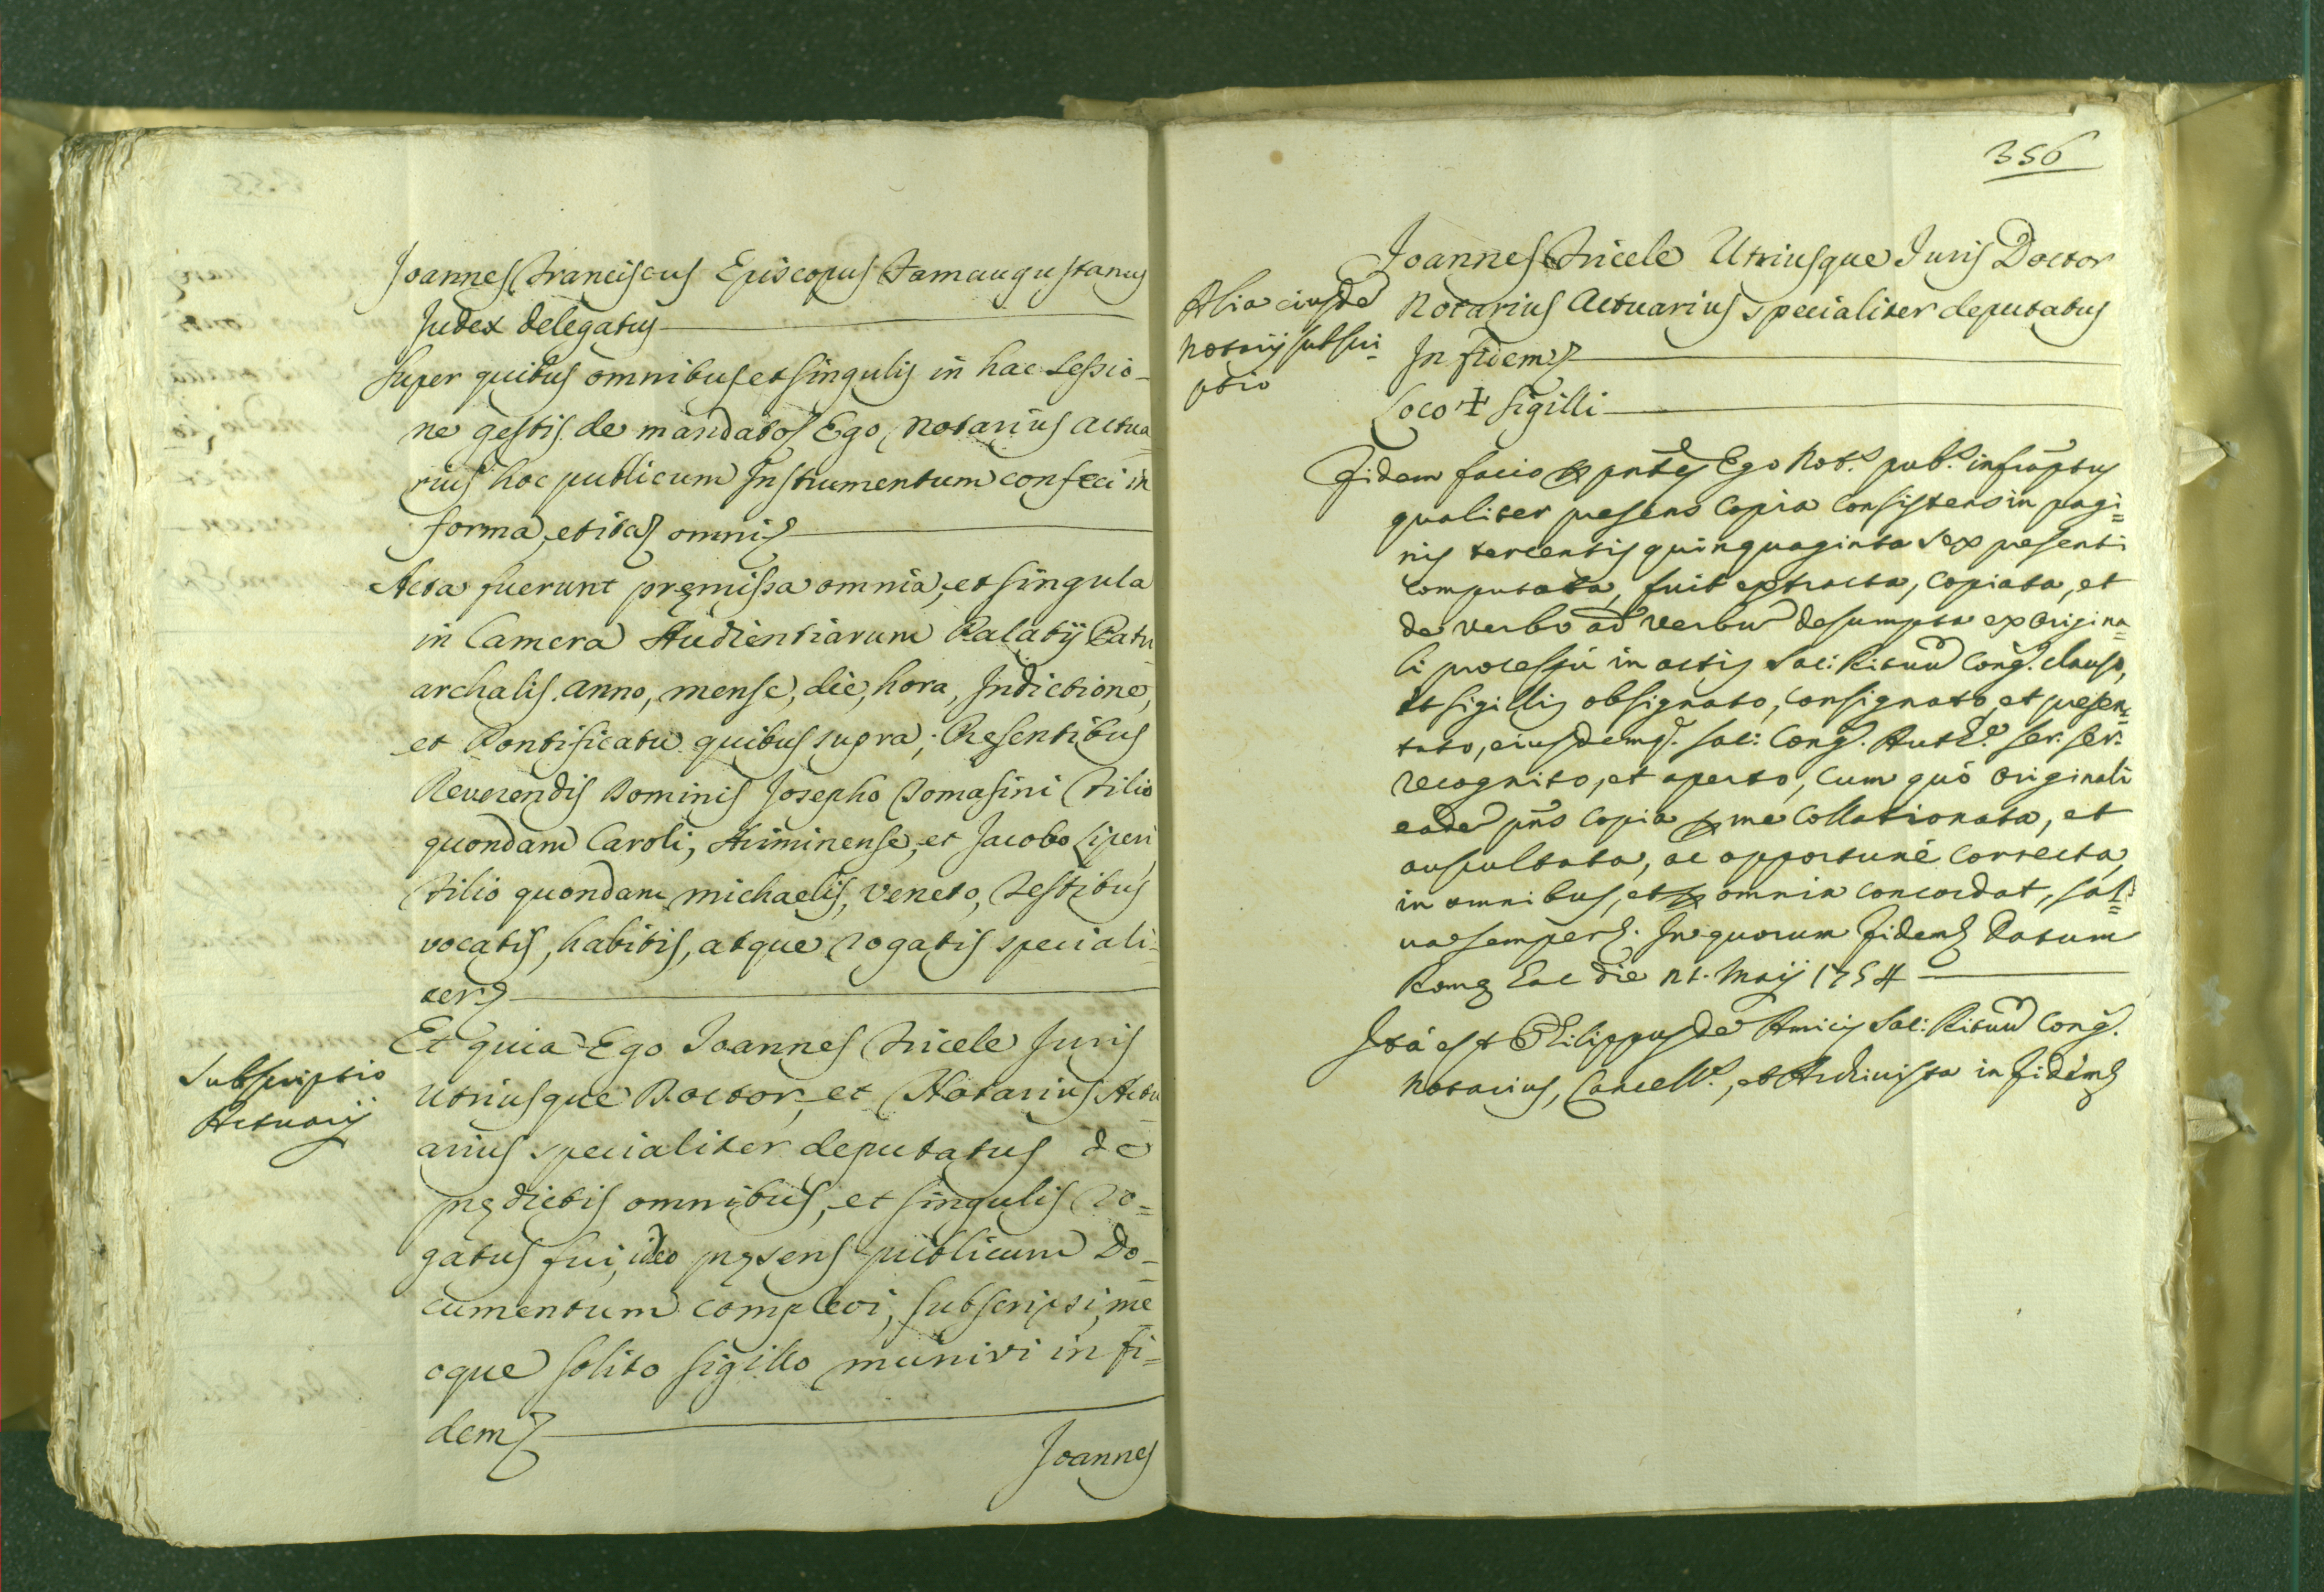 Joannes Franciscus Episcopus Famaugustanus
Judex delegatus
Super quibus omnibus et singulis in hac Sessio-
ne gestis de mandato Ego Notarius Actua
rius hoc publicum Instrumentum confeci in
forma, et ita omni
Acta fuerunt premissa omnia, et singula
in Camera Audientiarum Palatij Patri
archalis anno, mense, die, hora, Indictione,
et Pontificatu quibus supra; Presentibus
Reverendis Dominis Josepho Tomasini Filio
quondam Caroli, Ariminense, et Jacobo Liperi
Filio quondam Michaelis, Veneto, Testibus
vocatis, habitis, atque rogatis speciali-
ter
Subscriptio
Actuarij
Et quia Ego Joannes Fricele Juris
Utriusque Doctor, et Notarius Actu
arius specialiter deputatus de
prędictis omnibus, et singulis ro=
gatus fui, ideo pręsens publicum Do-
cumentum complevi, subscripsi, me
oque solito sigillo munivi in fi=
dem
Joannes
356
Joannes Fricele Utriusque Juris Doctor
Notarius Actuarius specialiter deputatus
In fidem
Loco ✝ Sigilli
Alia eiusdē
Notarij subscri-
ptio
Fidem facio pñtēs Ego Not.s pub.s infrāptus
qualiter presens Copia Consistens in pagi=
nis tercentis quinquaginta sex presenti
computata, fuit extracta, copiata, et
de verbo ad verbū desumpta ex origina=
li processu in actis Sac: Rituū Cong. clauso,
et sigillis obsignato, consignato, et presen=
tato, eiusdemq. Sac: Cong. Auth.e ser: ser:
recognito, et aperto, cum quò originali
eadē pñs Copia me Collationata, et
auscultata, ac opportunè correcta,
in omnibus, et omnia concordat, sal=
va semper. In quorum Fidem Datum
Romę hac die 21. Maij 1754
Ità est Philippus de Amicis Sac: Rituū Cong.
Notarius, Cancell.s, et Archivista in Fidem